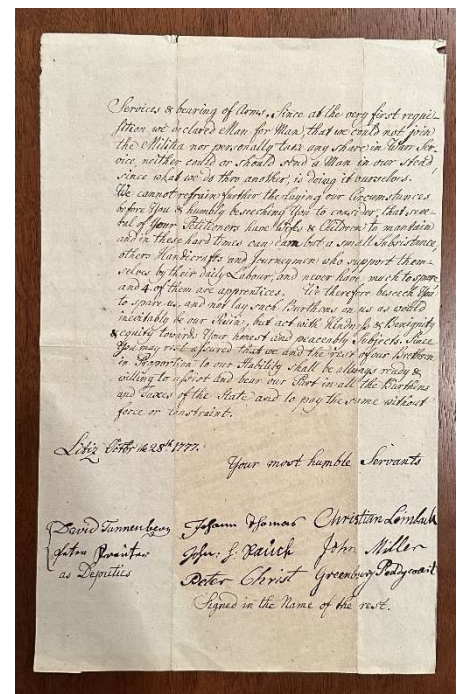 Services & bearing of Arms, Since at the very first requi-
sition we declared Man for Man, that we could not join
the Militia nor personally take any share in Warr Ser-
vice, neither could or should send a Man in our stead,
since what we do thro another, is doing it ourselves.
We cannot refrain further the laying our Circumstances
before You & humbly beseeching You to consider, that seve-
ral of Your Petitioners have Wifes & Children to mantain
and in these hard times can earn but a small Subsistance,
others Handicrafts and Journeymen who support them-
selves by their daily Labour, and never have much to spare
and 4. of them are apprentices. We therefore beseech You
to spare us, and not lay such Burthens on us as would
inevitably be our Ruin, but act with Kindness & Benignity
& equity towards Your honest and peaceably Subjects. Since
You may rest assured that we and the rest of our Brethren
in Proportion to our Ability shall be always ready &
willing to assist and bear our Part in all the Burthens
and Taxes of the State and to pay the same without
force or constraint.
Litiz Octbr the 28th 1777.
Your most humble Servants
David Tannenberg Johann Thomas Christian Lembach
Peter as Deputies
John Miller
Peter Christ Greenbury Peddycoart
Signed in the Name of the rest.